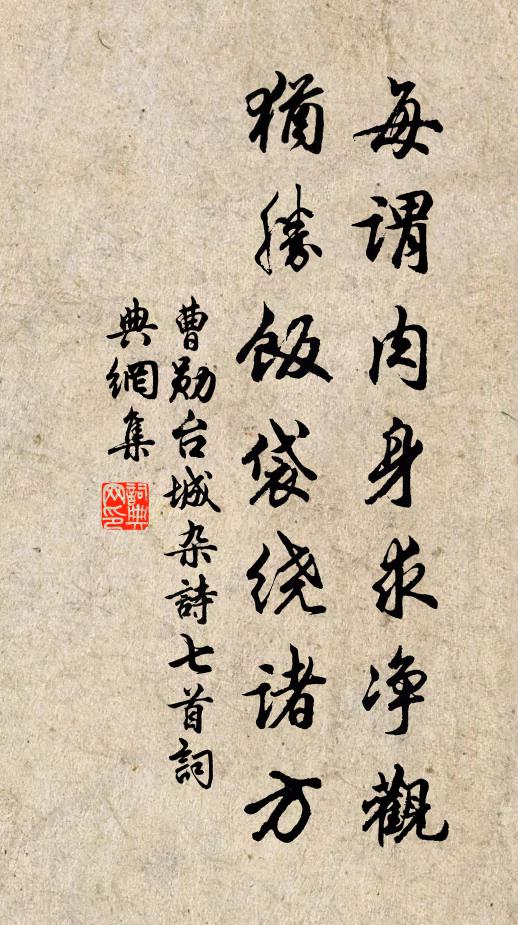 每谓肉身求净觀
猶勝飯袋绕诸方
曹勛台城杂詩七首詞
典網集
詞典
网印